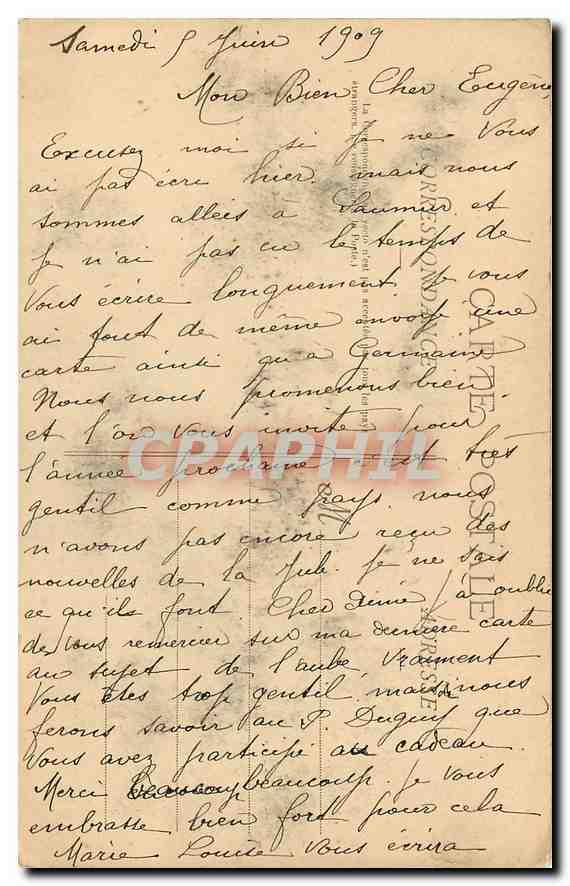 Samedi 5 Juin 1909
Mon Bien Cher Eugène,
Excusez moi si je ne Vous
ai pas écri hier. mais nous
sommes alleis à Saumur et
je n'ai pas eu le temps de
Vous écrire longuement je vous
ai tout de même envoyé une
carte ainsi qu'a Germaine
Nous nous promenons bien
et l'on vous invite pour
l'année prochaine c'est très
gentil comme pays. nous
n'avons pas encore reçu des
nouvelles de la Jub. Je ne sais
ce qu'ils font. Cher Aimé j'ai oublié
de Vous remercier sur ma dernière carte
au sujet de l'aube Vraiment
Vous êtes trop gentil, mais nous
ferons savoir au P. Duguy que
Vous avez participé au cadeau.
Merci beaucoup beaucoup. Je vous
embrasse bien fort pour cela
Marie Louise Vous écrira
CARTE POSTALE
CORRESPONDANCE
ADRESSE
M
CPAPHIL